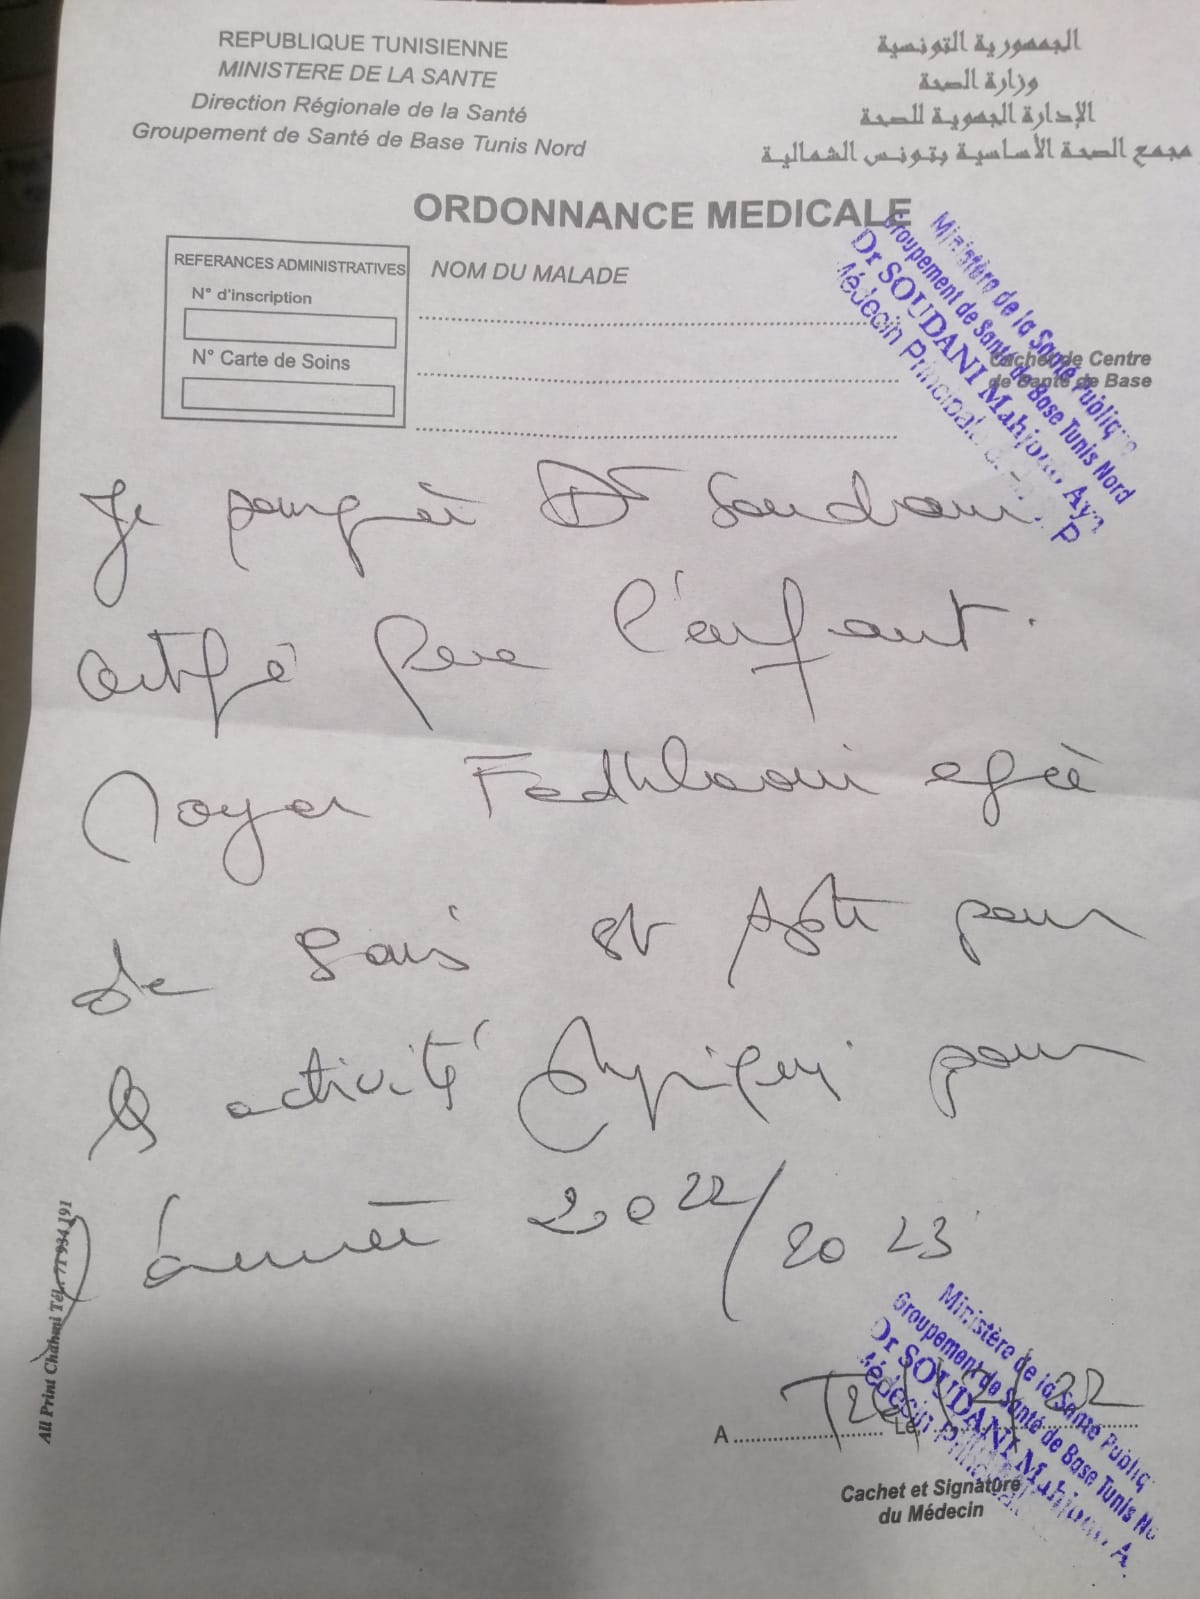 REPUBLIQUE TUNISIENNE
MINISTERE DE LA SANTE
Direction Régionale de la Santé
Groupement de Santé de Base Tunis Nord
الجمهورية التونسية
وزارة الصحة
الإدارة الجهوية للصحة
مجمع الصحة الأساسية بتونس الشمالية
ORDONNANCE MEDICALE
REFERANCES ADMINISTRATIVES
N° d'inscription
N° Carte de Soins
NOM DU MALADE
Cachet de Centre
de Santé de Base
Ministère de la Santé Publique
Groupement de Santé de Base Tunis Nord
Dr SOUDANI Mahjoub Aya
Médecin Principal
Je Dr Soudani
certifie que l'enfant
Fedhlaoui
de est pour
activité pour
l'année 2022/2023
All Print Chahani Tél.: 71 934 191
A Le 22
Cachet et Signature
du Médecin
Ministère de la Santé Publiq
Groupement de Santé de Base Tunis No
Dr SOUDANI Mahjoub A
Médecin Principal